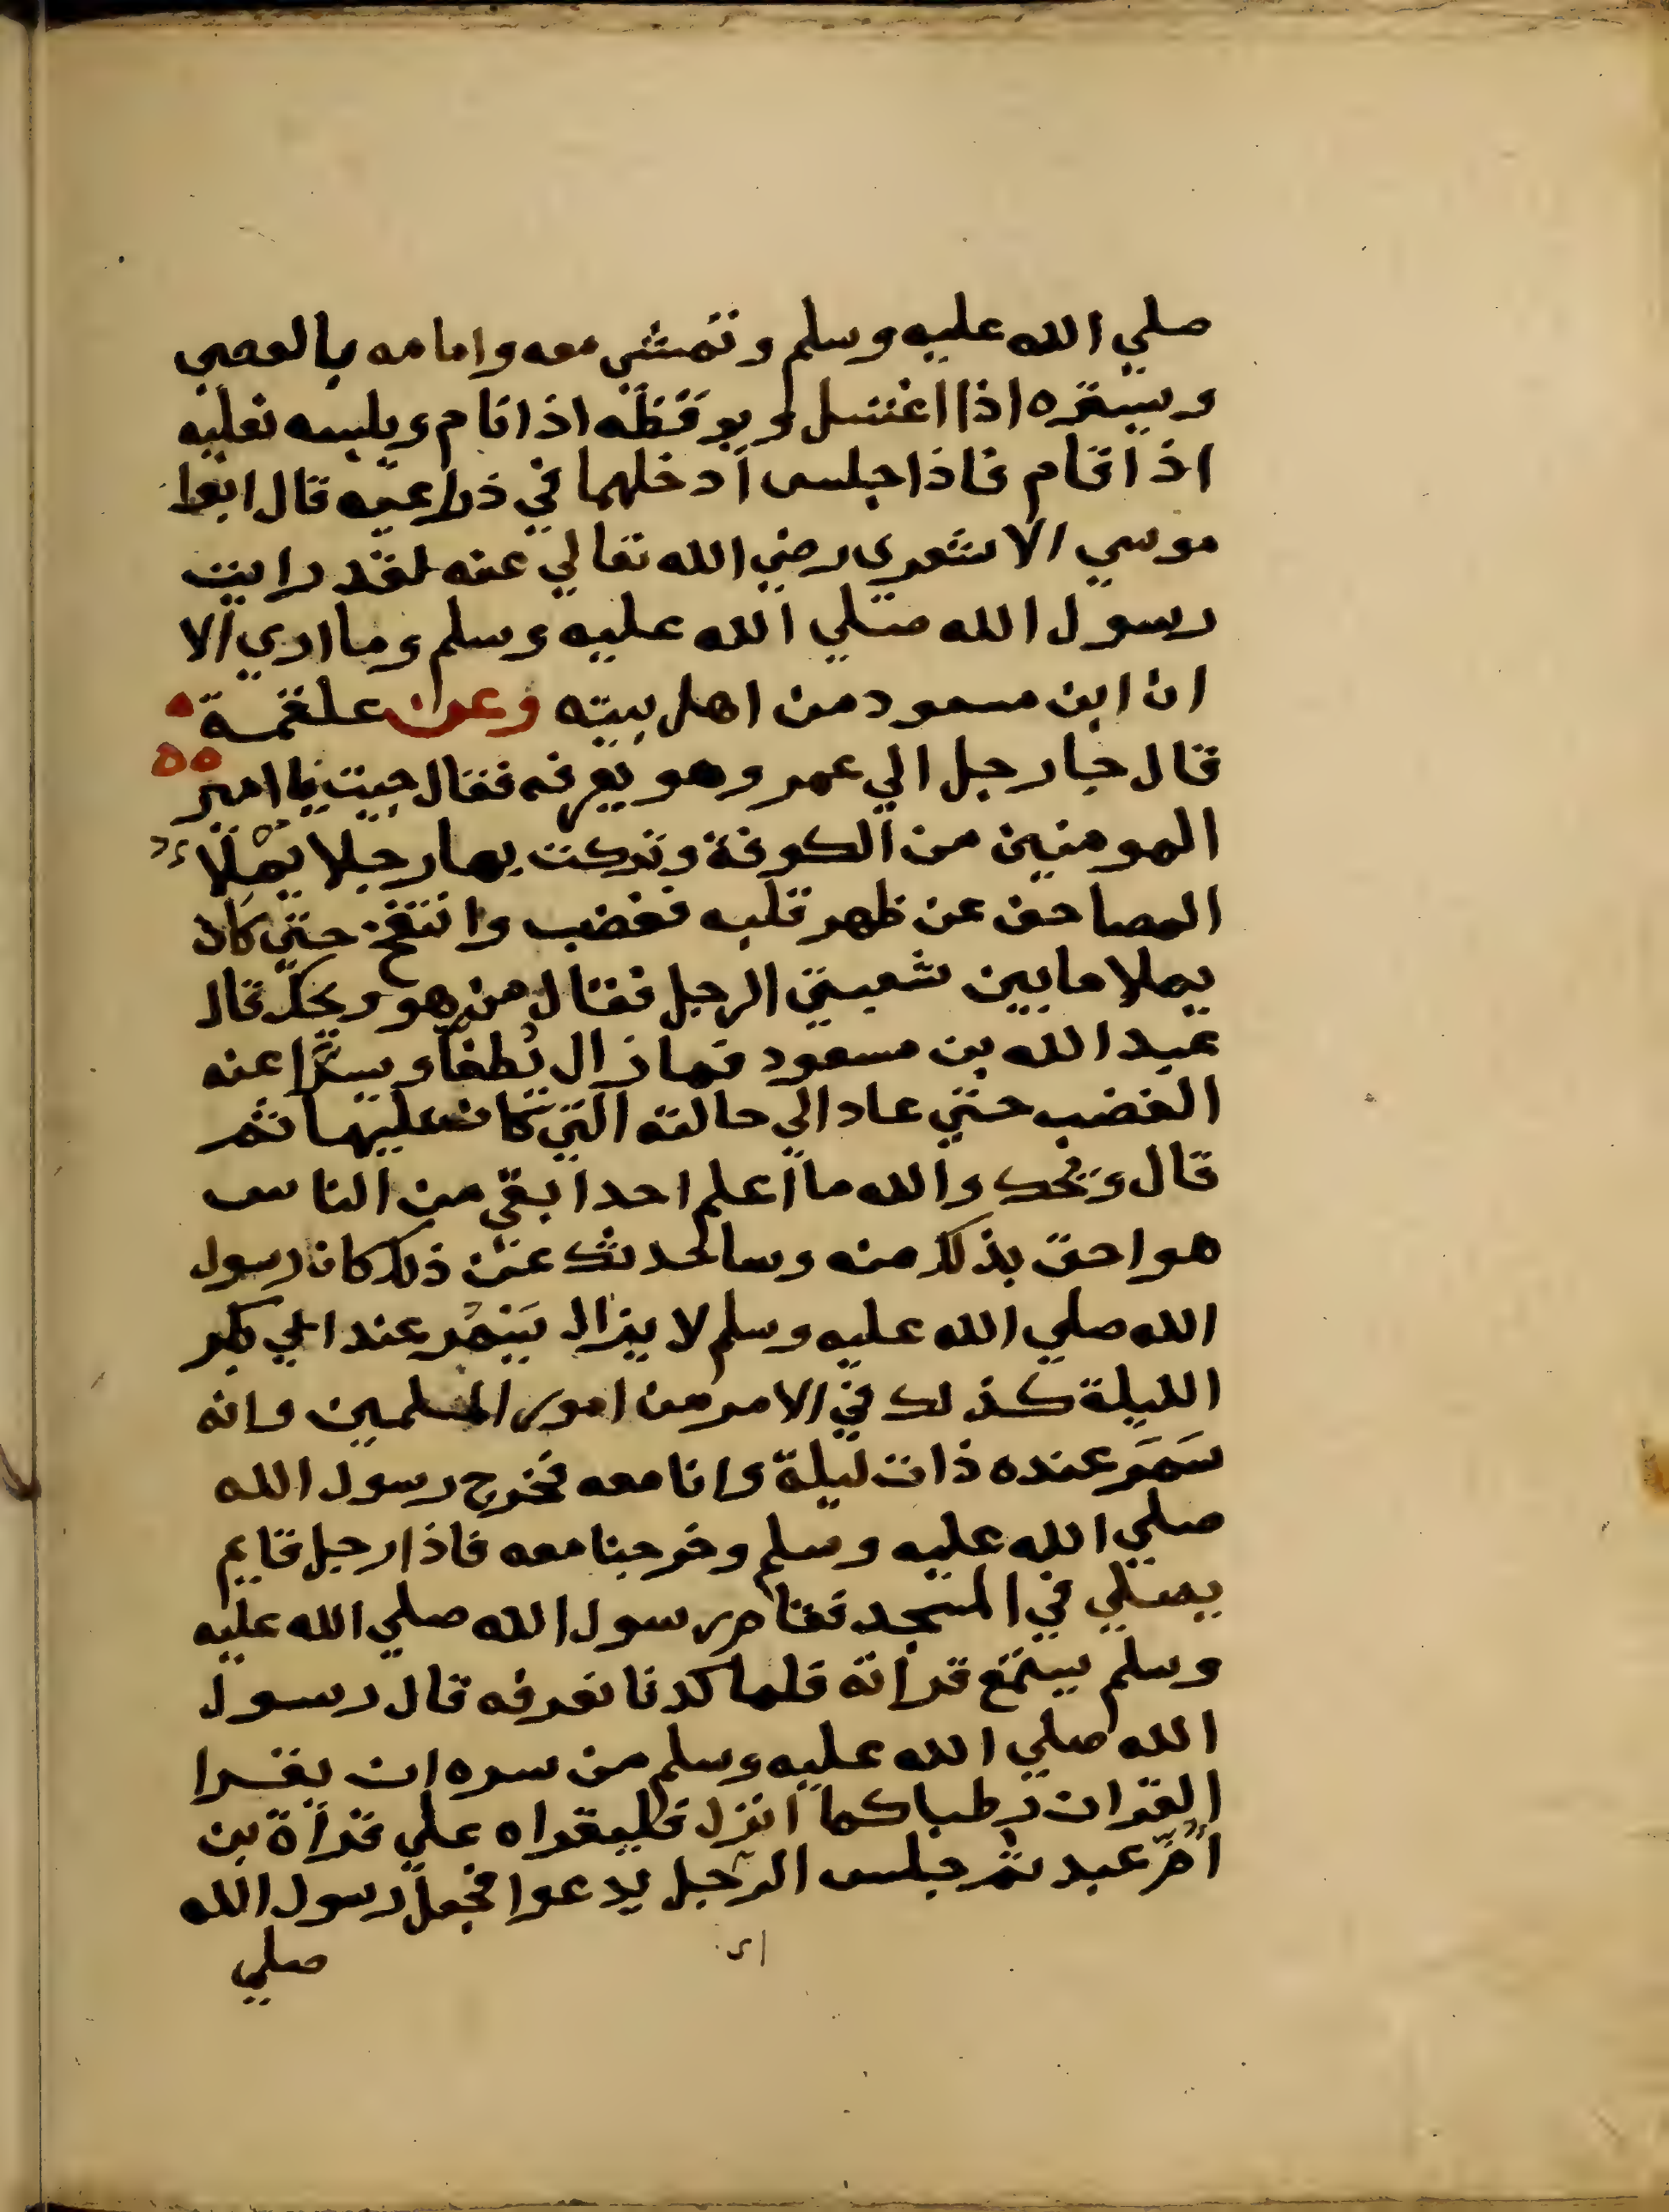 صلي الله عليه وسلم وتمشي معه وامامه بالعصي
ويستره اذا اغتسل ويوقظه اذا نام ويلبسه نعليه
اذا قام فاذا جلس ادخلهما في ذراعيه قال ابوا
موسي الاشعري رضي الله تعالي عنه لقد رايت
رسول الله صلي الله عليه وسلم وما اري الا
ان ابن مسعود من اهل بيته وعن علقمة
قال جا رجل الي عمر وهو بعرفه فقال جيت يا امير
المومنين من الكوفة وتركت بها رجلا يملاء
المصاحف عن ظهر قلبه فغضب وانتفخ حتي كان
يملا ما بين شعبتي الرجل فقال من هو ويحك قال
عبد الله بن مسعود فما زال يُطفا ويسرا عنه
الغضب حتي عاد الي حالته التي كان عليها ثم
قال ويحك والله ما اعلم احدا بقي من الناس
هو احق بذلك منه وساحدثك عن ذلك كان رسول
الله صلي الله عليه وسلم لا يزال يَسْمُر عند ابي بكر
الليلة كذلك في الامر من امور المسلمين وانه
سَمَرَ عنده ذات ليلة وانا معه فخرج رسول الله
صلي الله عليه وسلم وخرجنا معه فاذا رجل قايم
يصلي في المسجد فقام رسول الله صلي الله عليه
وسلم يستمع قراته فلما كدنا نعرفه قال رسول
الله صلي الله عليه وسلم من سره ان يقرا
القران رطبا كما انزل فليقراه علي قرأة بن
اُمِّ عبد ثم جلس الرجل يدعوا فجعل رسول الله
صلي